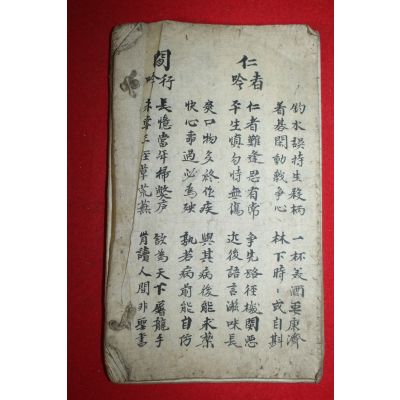 釣水誤持生殺柄 一杯美酒要康濟
着碁閑動戰爭心 林下時〻或自斟
仁者吟
仁者難逢思有常 爭先路徑機關惡
平生慎勿恃無傷 近後語言滋味長
爽口物多終作疾 與其病後能求藥
快心事過必為殃 孰若病前能自防
閒行吟
長憶當年掃弊庐 欲為天下屠龍手
未嘗三徑草荒蕪 肯讀人間非聖書